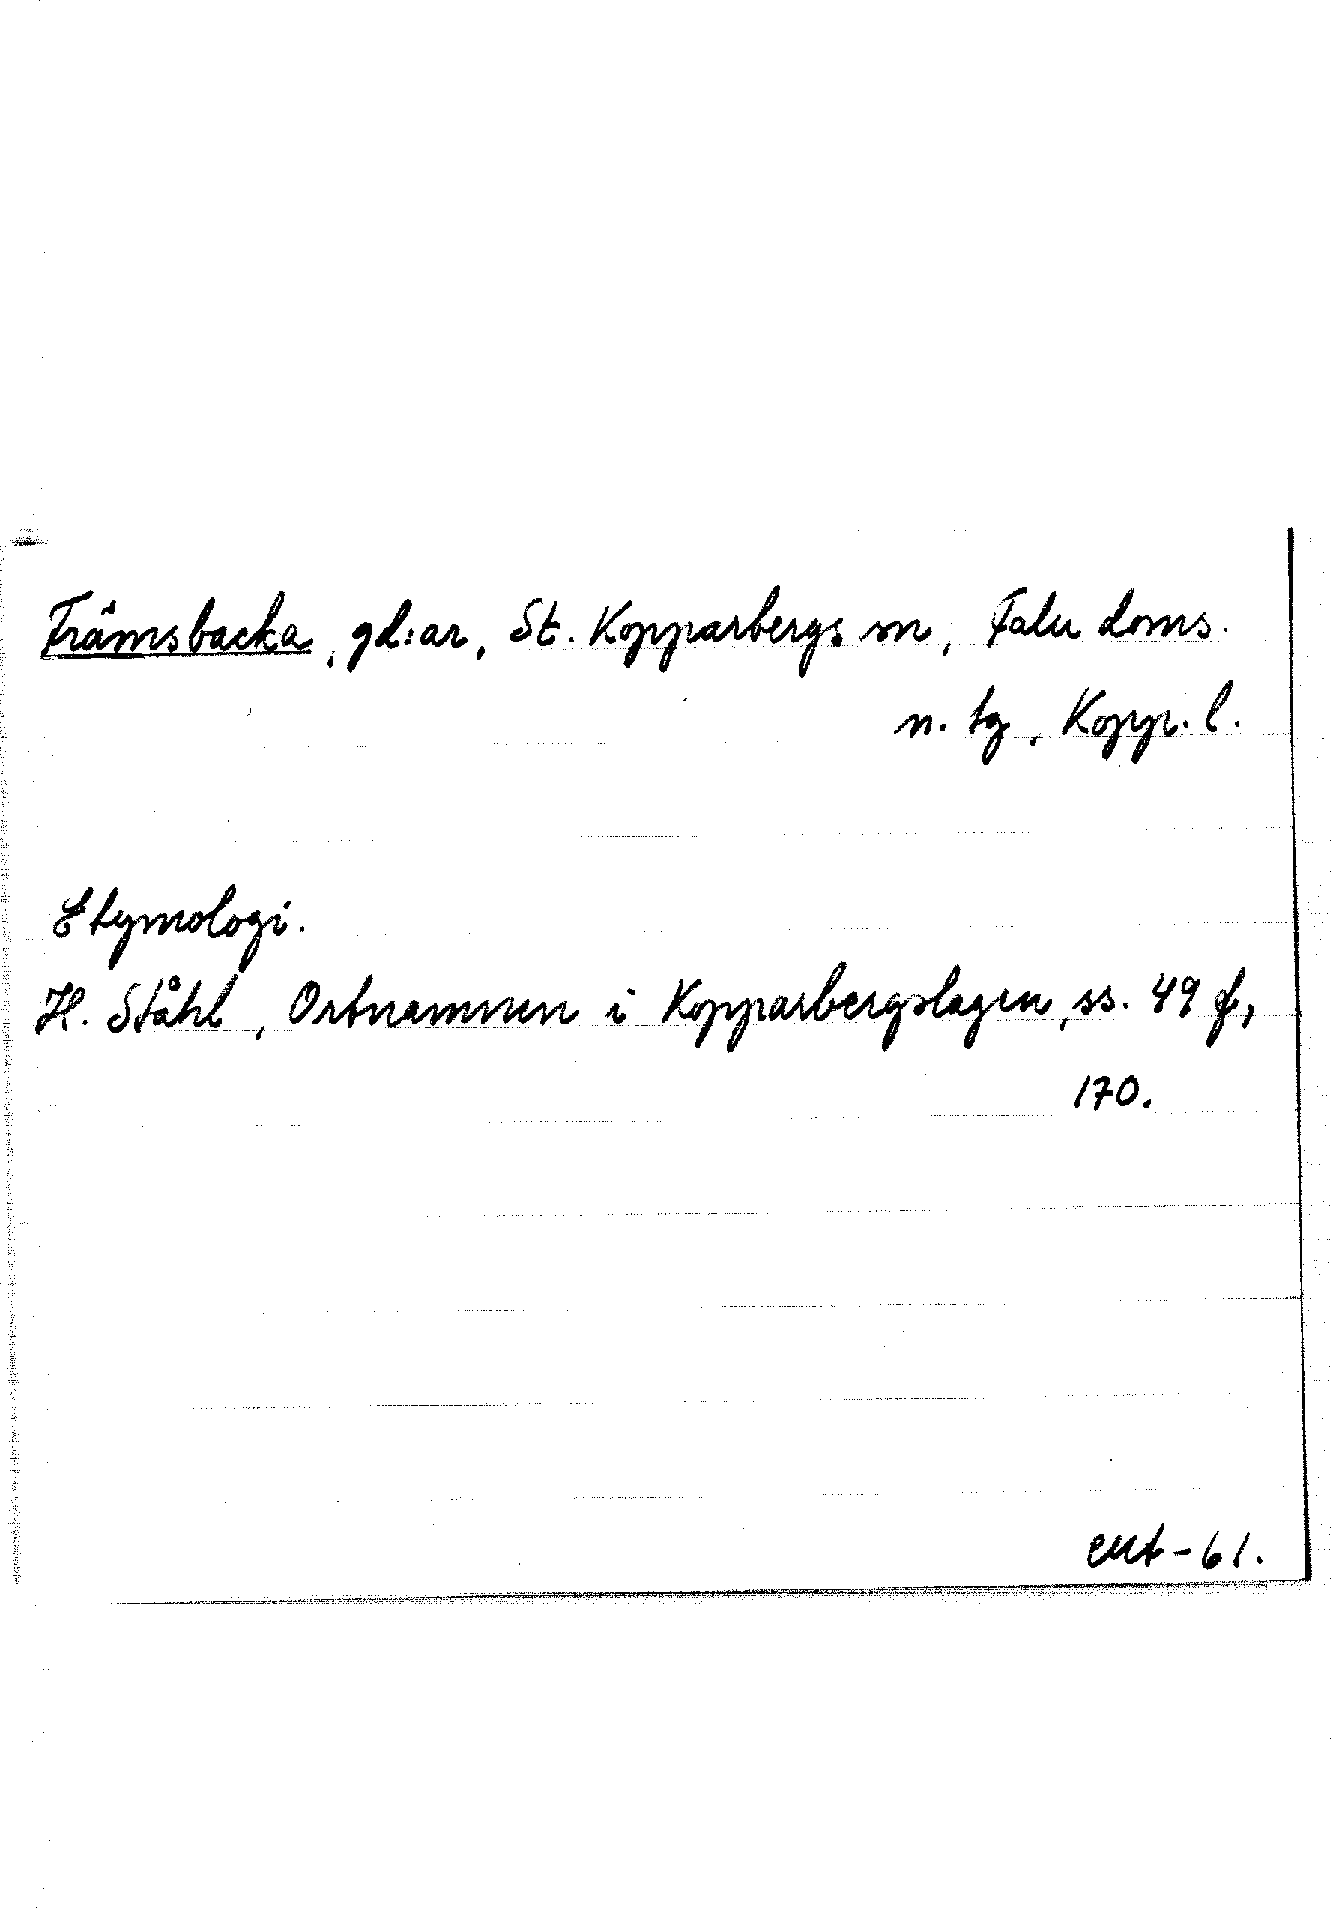 Främsbacka, gd:ar, St. Kopparbergs sn, Falu doms.
n. tg, Kopp. l.
Etymologi.
H. Ståhl, Ortnamnen i Kopparbergslagen, ss. 49 f,
170.
-61.